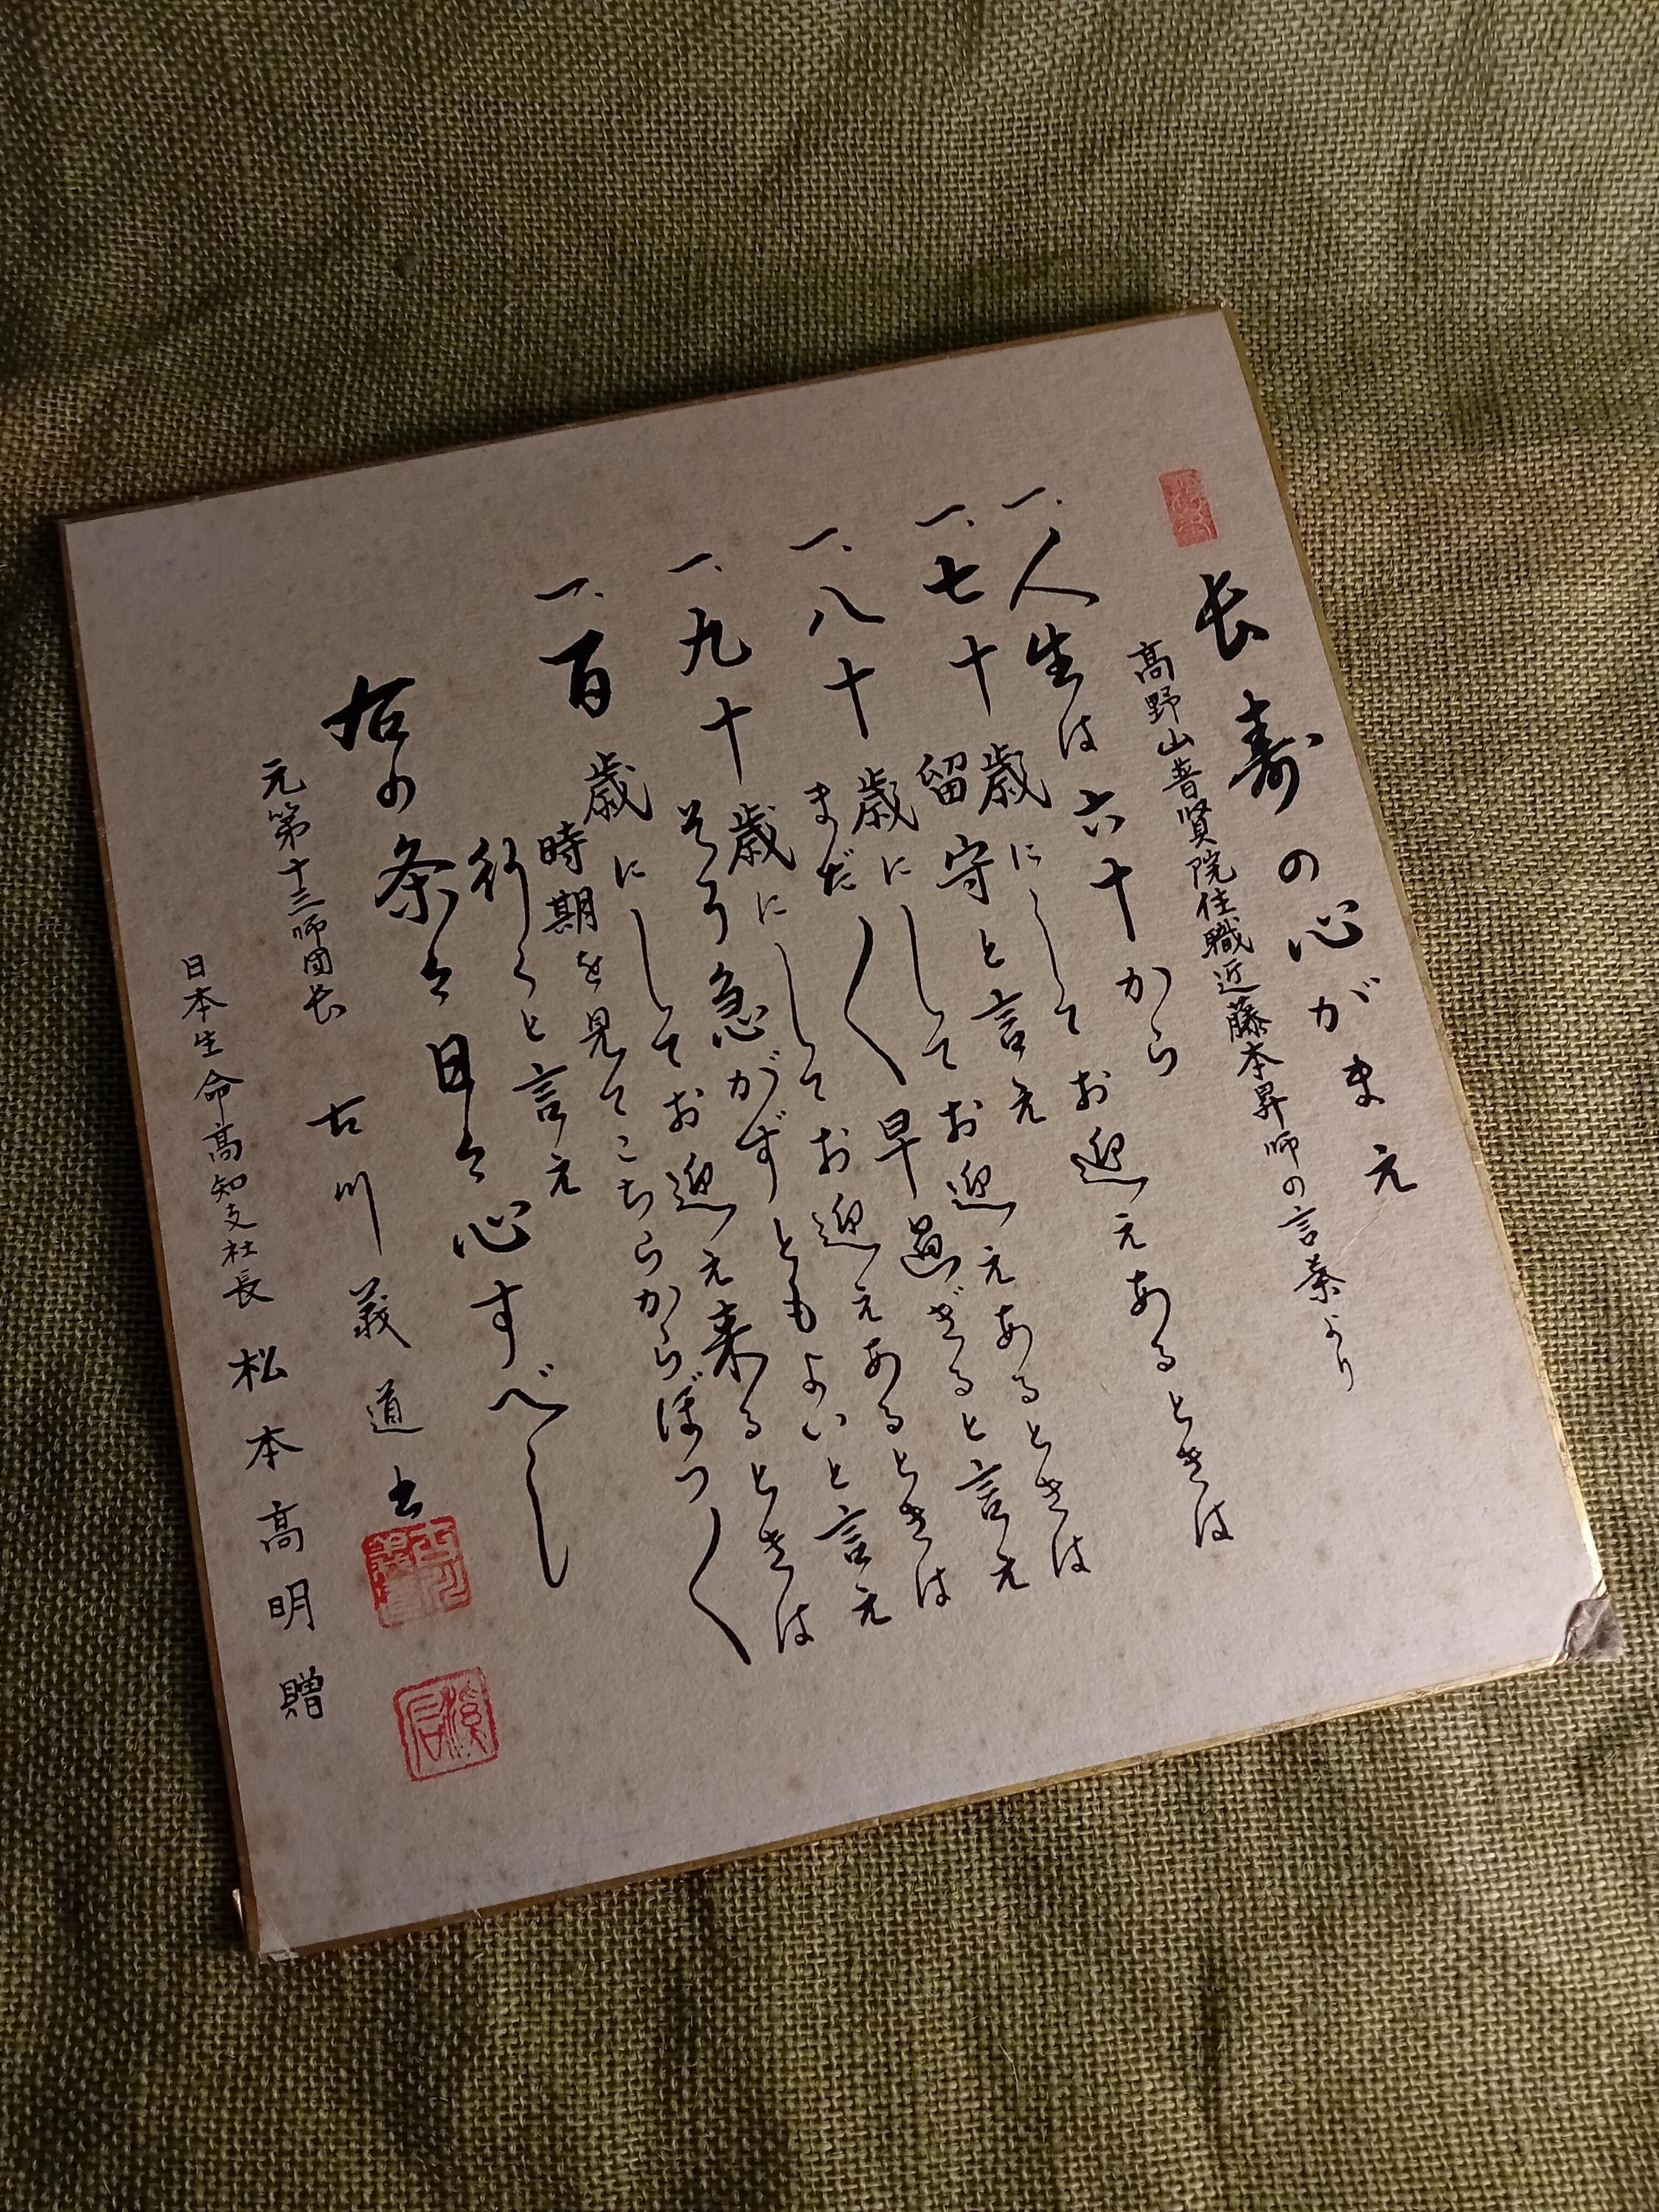 长寿の心がまえ
高野山普賢院住職近藤本昇師の言葉より
一、人生は六十から
一、七十歳にしてお迎えあるときは
留守と言え
一、八十歳にしてお迎えあるときは
まだ〱早過ぎると言え
一、九十歳にしてお迎えあるときは
そう急がずともよいと言え
一、百歳にしてお迎え来るときは
時期を見てこちらからぼつ〱
行くと言え
右の条々日々心すべし
元第十三師団長 古川義道書
日本生命高知支社長 松本高明贈